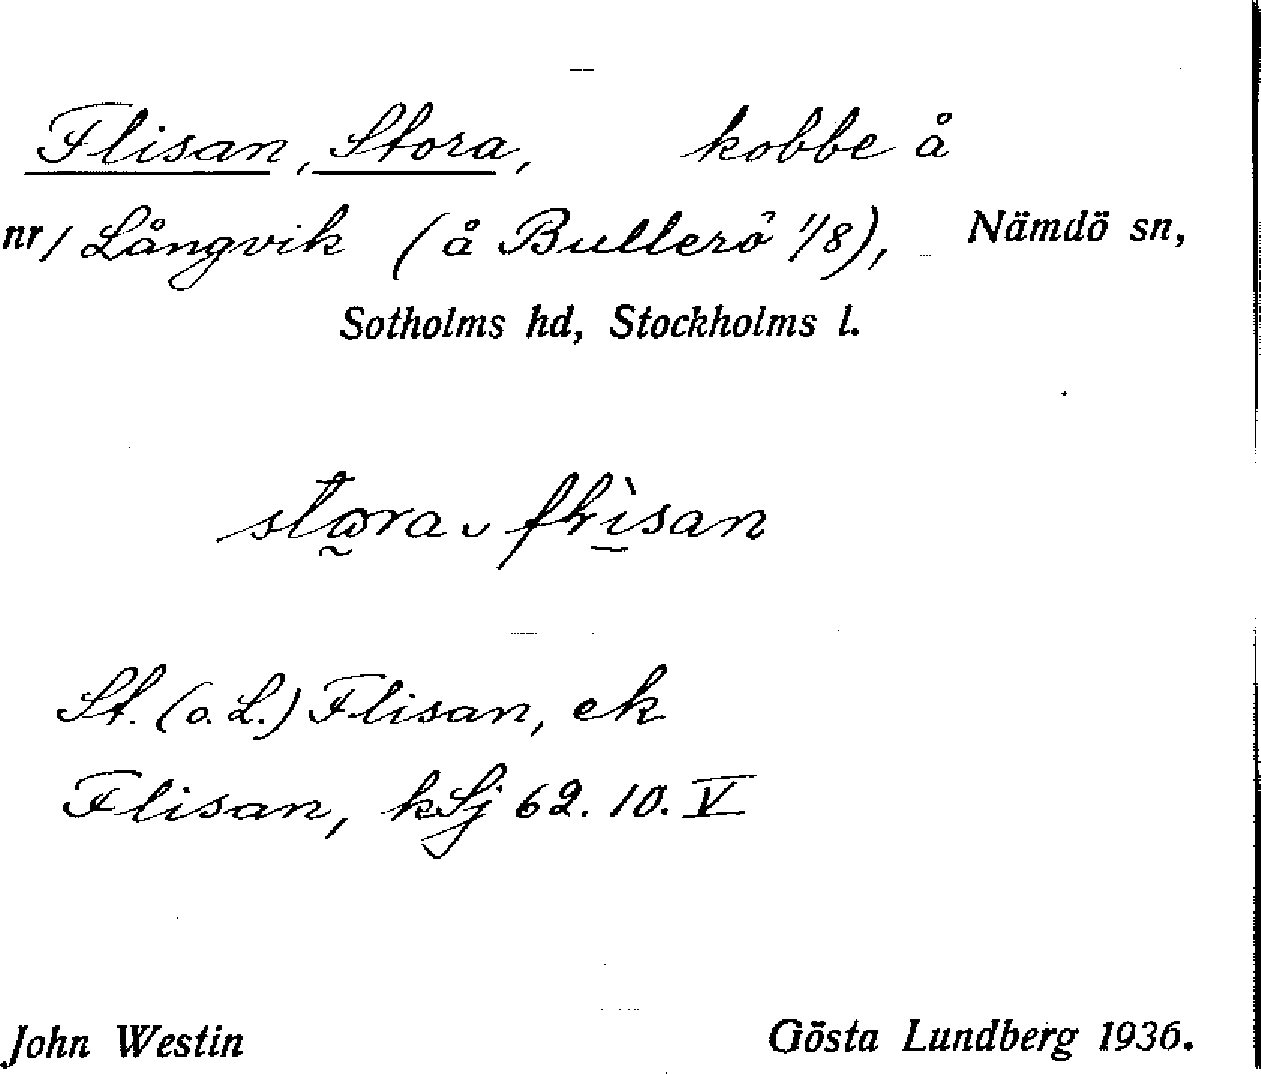 Flisan, Stora, kobbe å
nr/ Långvik (å Bullerö 1/8), Nämdö sn,
Sotholms hd, Stockholms l.
St. (o. L.) Flisan, ek
Flisan, kSj 62. 10. V
John Westin Gösta Lundberg 1936.